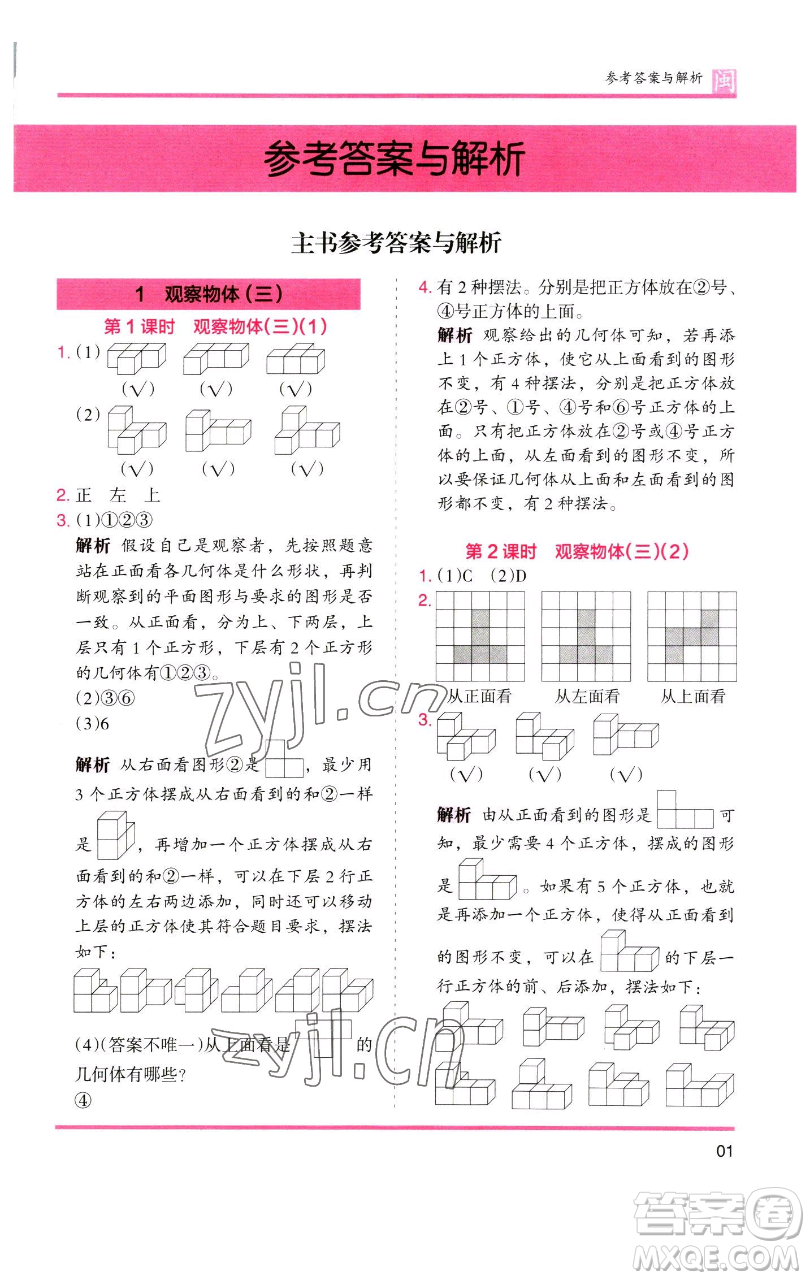 参考答案与解析 闽
参考答案与解析
主书参考答案与解析
1 观察物体(三)
第1课时 观察物体(三)(1)
1. (1)
(√) (√) (√)
(2)
(√) (√) (√)
2. 正 左 上
3. (1)①②③
解析 假设自己是观察者，先按照题意
站在正面看各几何体是什么形状，再判
断观察到的平面图形与要求的图形是否
一致。从正面看，分为上、下两层，上
层只有1个正方形，下层有2个正方形
的几何体有①②③。
(2)③⑥
(3)6
解析 从右面看图形②是，最少用
3个正方体摆成从右面看到的和②一样
是，再增加一个正方体摆成从右
面看到的和②一样，可以在下层2行正
方体的左右两边添加，同时还可以移动
上层的正方体使其符合题目要求，摆法
如下：
(4)(答案不唯一)从上面看是的
几何体有哪些?
④
4. 有2种摆法。分别是把正方体放在②号、
④号正方体的上面。
解析 观察给出的几何体可知，若再添
上1个正方体，使它从上面看到的图形
不变，有4种摆法，可以把正方体放
在②号、①号、④号和⑥号正方体的上
面。只有把正方体放在②号或④号正方
体的上面，从左面看到的图形不变，所
以要保证几何体从上面和左面看到的图
形都不变，有2种摆法。
第2课时 观察物体(三)(2)
1. (1)C (2)D
2.
从正面看 从左面看 从上面看
3.
(√) (√) (√)
解析 由从正面看到的图形是可
知，最少需要4个正方体，摆成的图形
是。如果有5个正方体，也就
是再添加一个正方体，使得从正面看到
的图形不变，可以在的下层一
行正方体的前、后添加，摆法如下：
01
zyjl.cn
zyjl.cn
答案圈
MXQE.COM